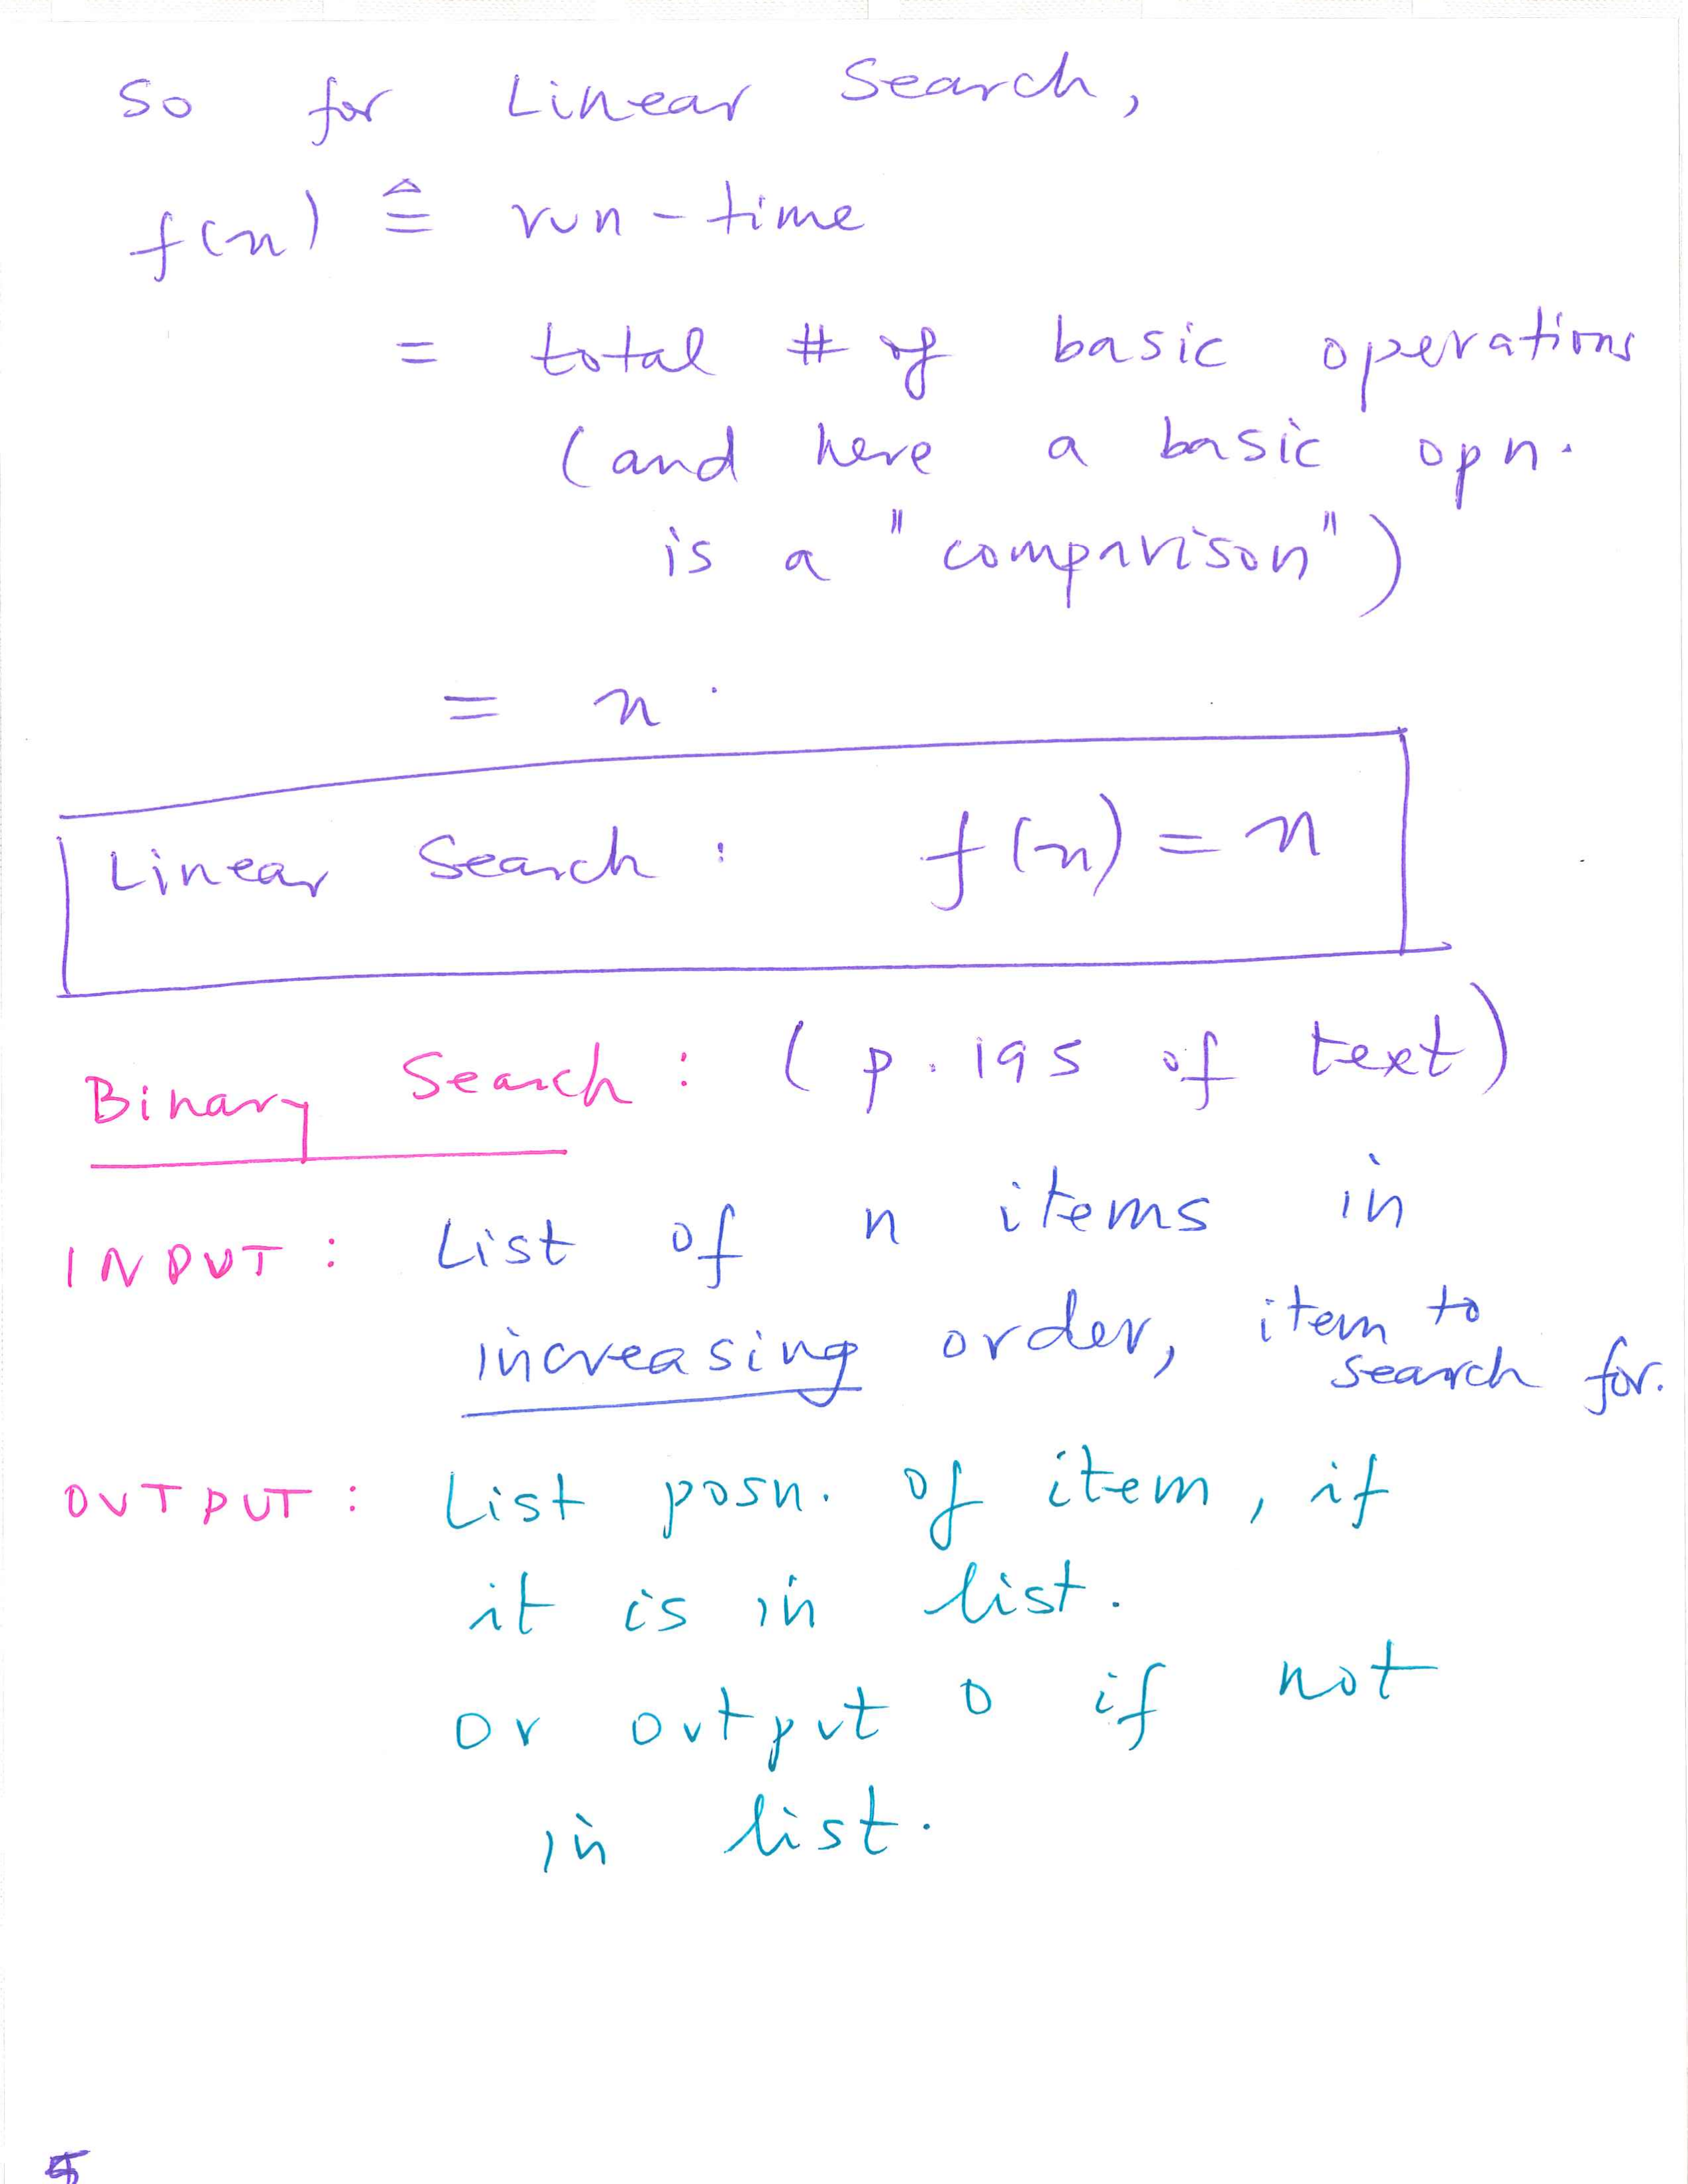 So for Linear Search,
f(n) ≙ run-time
= total # of basic operations
(and here a basic opn.
is a "comparison")
= n.
Linear Search : f(n) = n
Binary Search : (p. 195 of text)
INPUT : List of n items in
increasing order, item to
search for.
OUTPUT : List posn. of item, if
it is in list.
or output 0 if not
in list.
5